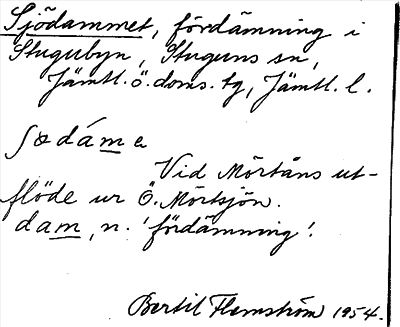 Sjödammet, fördämning i
Stugubyn, Stuguns sn,
Jämtl. ö. doms. tg, Jämtl. l.
ʃødáme
Vid Mörtåns ut-
flöde ur Ö. Mörtsjön.
dam, n. 'fördämning'.
Bertil Flemström 1954.